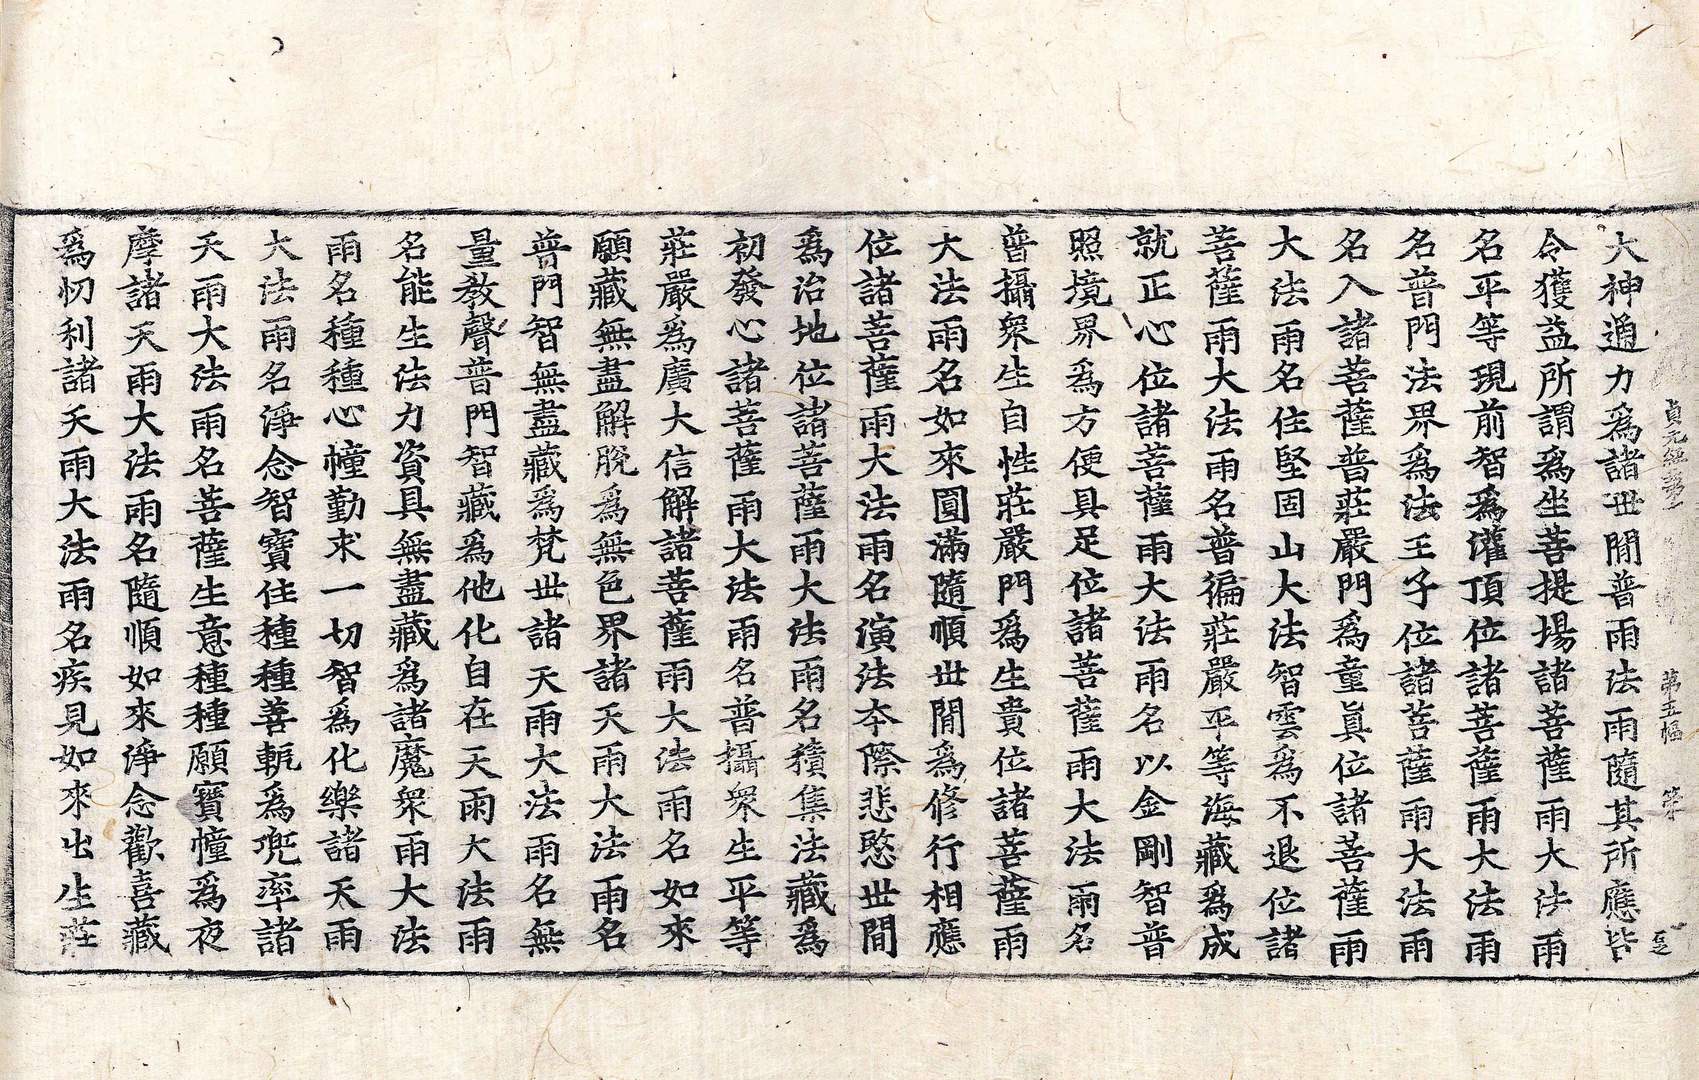 大神通力爲諸世閒普雨法雨隨其所應皆
令獲益所謂爲坐菩提場諸菩薩雨大法雨
名平等現前智爲灌頂位諸菩薩雨大法雨
名普門法界爲法王子位諸菩薩雨大法雨
名入諸菩薩普莊嚴門爲童眞位諸菩薩雨
大法雨名住堅固山大法智雲爲不退位諸
菩薩雨大法雨名普徧莊嚴平等海藏爲成
就正心位諸菩薩雨大法雨名以金剛智普
照境界爲方便具足位諸菩薩雨大法雨名
普攝衆生自性莊嚴門爲生貴位諸菩薩雨
大法雨名如來圓滿隨順世閒爲修行相應
位諸菩薩雨大法雨名演法夲際悲愍世閒
爲治地位諸菩薩雨大法雨名積集法藏爲
初發心諸菩薩雨大法雨名普攝衆生平等
莊嚴爲廣大信解諸菩薩雨大法雨名如來
願藏無盡解脫爲無色界諸天雨大法雨名
普門智無盡藏爲梵世諸天雨大法雨名無
量敎聲普門智藏爲他化自在天雨大法雨
名能生法力資具無盡藏爲諸魔衆雨大法
雨名種種心幢勤求一切智爲化樂諸天雨
大法雨名淨念智寶住種種菩軛爲兜率諸
天雨大法雨名菩薩生意種種願寶幢爲夜
摩諸天雨大法雨名隨順如來淨念歡喜藏
爲忉利諸天雨大法雨名疾見如來出生莊